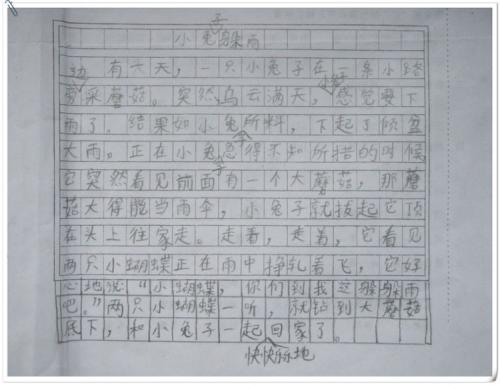 小兔子躲雨
有一天，一只小兔子在一条小路
旁边采蘑菇。突然，乌云满天，小兔子感觉要下
雨了。结果如小兔所料，下起了倾盆
大雨。正在小兔子急得不知所措的时候
它突然看见前面有一个大蘑菇，那蘑
菇大得能当雨伞，小兔子就拔起它顶
在头上往家走。走着，走着，它看见
两只小蝴蝶正在雨中挣扎着飞，它好
心地说：“小蝴蝶，你们到我这躲躲雨
吧。”两只小蝴蝶一听，就钻到大蘑菇
底下，和小兔子一起快快乐乐地回家了。